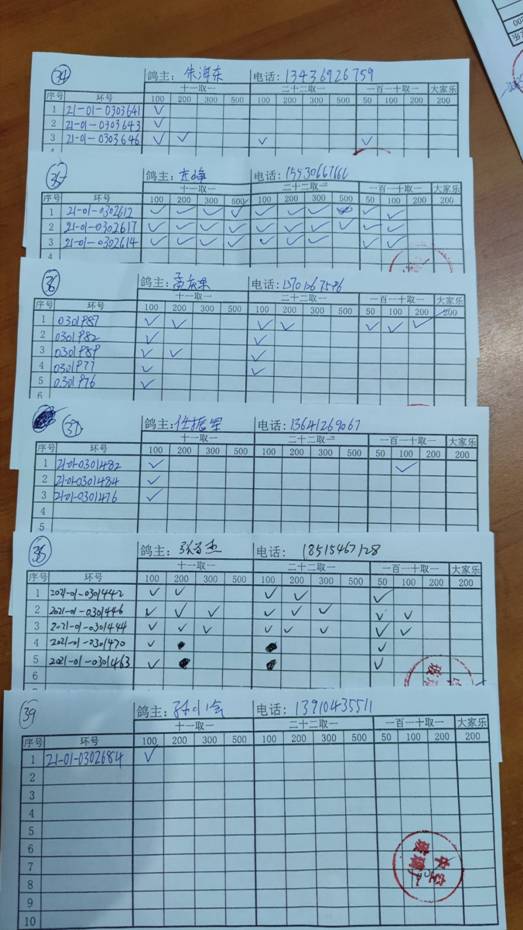 34 鸽主： 朱泽东 电话： 13436926759
十一取一 二十二取一 一百一十取一 大家乐
序号 环号 100 200 300 500 100 200 300 500 50 100 200 200
1 21-01-0303641 ✓
2 21-01-0303643 ✓
3 21-01-0303646 ✓ ✓ ✓ ✓
35 鸽主： 电话：
十一取一 二十二取一 一百一十取一 大家乐
序号 环号 100 200 300 500 100 200 300 500 50 100 200 200
1 21-01-0302612 ✓ ✓ ✓ ✓ ✓ ✓ ✓ ✓ ✓
2 21-01-0302617 ✓ ✓ ✓ ✓ ✓ ✓ ✓ ✓ ✓ ✓
3 21-01-0302614 ✓ ✓ ✓ ✓ ✓ ✓ ✓ ✓ ✓
36 鸽主： 电话：
十一取一 二十二取一 一百一十取一 大家乐
序号 环号 100 200 300 500 100 200 300 500 50 100 200 200
1 0301987 ✓ ✓ ✓ ✓ ✓ ✓ ✓
2 0301982 ✓ ✓
3 0301989 ✓ ✓ ✓
4 0301977 ✓ ✓
5 0301976 ✓
6
37 鸽主： 任振军 电话： 13641269067
十一取一 二十二取一 一百一十取一 大家乐
序号 环号 100 200 300 500 100 200 300 500 50 100 200 200
1 21-01-0301482 ✓ ✓
2 21-01-0301484 ✓
3 21-01-0301476 ✓
4
5
38 鸽主： 电话： 18515467128
十一取一 二十二取一 一百一十取一 大家乐
序号 环号 100 200 300 500 100 200 300 500 50 100 200 200
1 2021-01-0301442 ✓ ✓ ✓ ✓ ✓
2 2021-01-0301446 ✓ ✓ ✓ ✓ ✓ ✓ ✓ ✓
3 2021-01-0301444 ✓ ✓ ✓ ✓ ✓ ✓ ✓ ✓
4 2021-01-0301470 ✓ ✓
5 2021-01-0301463 ✓ ✓
6
39 鸽主： 电话： 13910435511
十一取一 二十二取一 一百一十取一 大家乐
序号 环号 100 200 300 500 100 200 300 500 50 100 200 200
1 21-01-0302684 ✓
2
3
4
5
6
7
8
9
10